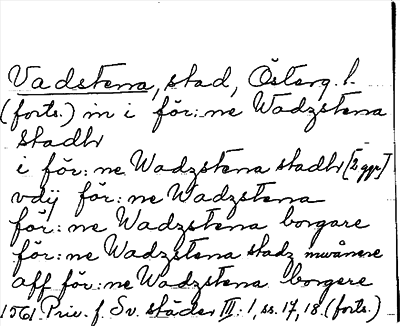 Vadstena, stad, Österg. l.
(forts.) in i för:ne Wadzstena
stadh
i för:ne Wadzstena stadh [2 ggr]
vdij för:ne Wadzstena
för:ne Wadzstena borgare
för:ne Wadzstena stadz inwånere
aff för:ne Wadzstena borgere
1561 Priv. f. Sv. städer III:1, ss. 17, 18. (forts.)